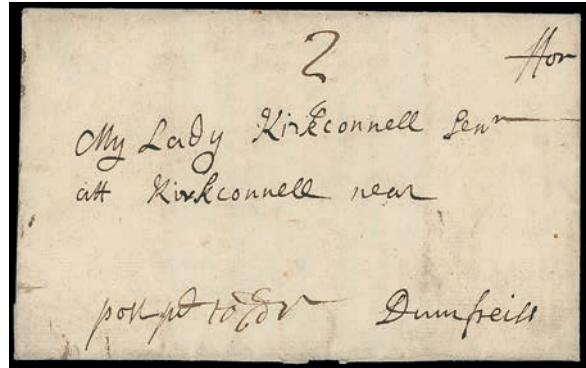 2
ffor
My Lady Kirkconnell Senr
att Kirkconnell near
post pd to Edr Dumfreiss